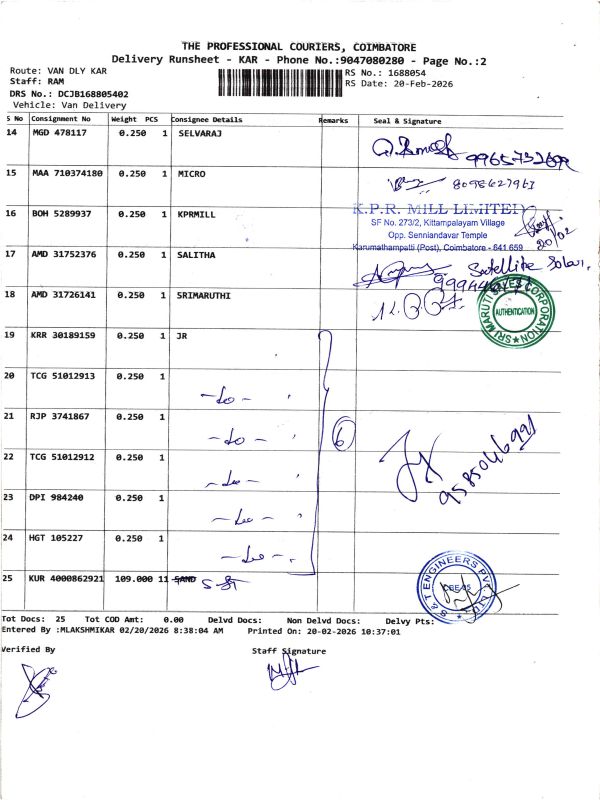 THE PROFESSIONAL COURIERS, COIMBATORE
Delivery Runsheet - KAR - Phone No.:9047080280 - Page No.:2
Route: VAN DLY KAR
Staff: RAM
DRS No.: DCJB168805402
Vehicle: Van Delivery
RS No.: 1688054
RS Date: 20-Feb-2026
S No Consignment No Weight PCS Consignee Details Remarks Seal & Signature
14 MGD 478117 0.250 1 SELVARAJ
15 MAA 710374180 0.250 1 MICRO
8098627961
16 BOH 5289937 0.250 1 KPRMILL
K.P.R. MILL LIMITED
SF No. 273/2, Kittampalayam Village
Opp. Senniandavar Temple
Karumathampatti (Post), Coimbatore - 641 659
20/02
17 AMD 31752376 0.250 1 SALITHA
Satellite Solar,
18 AMD 31726141 0.250 1 SRIMARUTHI
SRI MARUTI SALES CORPORATION
AUTHENTICATION
19 KRR 30189159 0.250 1 JR
20 TCG 51012913 0.250 1
-do-
21 RJP 3741867 0.250 1
-do- 6
22 TCG 51012912 0.250 1
-do-
9585046991
23 DPI 984240 0.250 1
-do-
24 HGT 105227 0.250 1
-do-
25 KUR 4000862921 109.000 11 SAND S&T
S & T ENGINEERS PVT. LTD.
CBE-45
Tot Docs: 25 Tot COD Amt: 0.00 Delvd Docs: Non Delvd Docs: Delvy Pts:
Entered By :MLAKSHMIKAR 02/20/2026 8:38:04 AM Printed On: 20-02-2026 10:37:01
Verified By Staff Signature